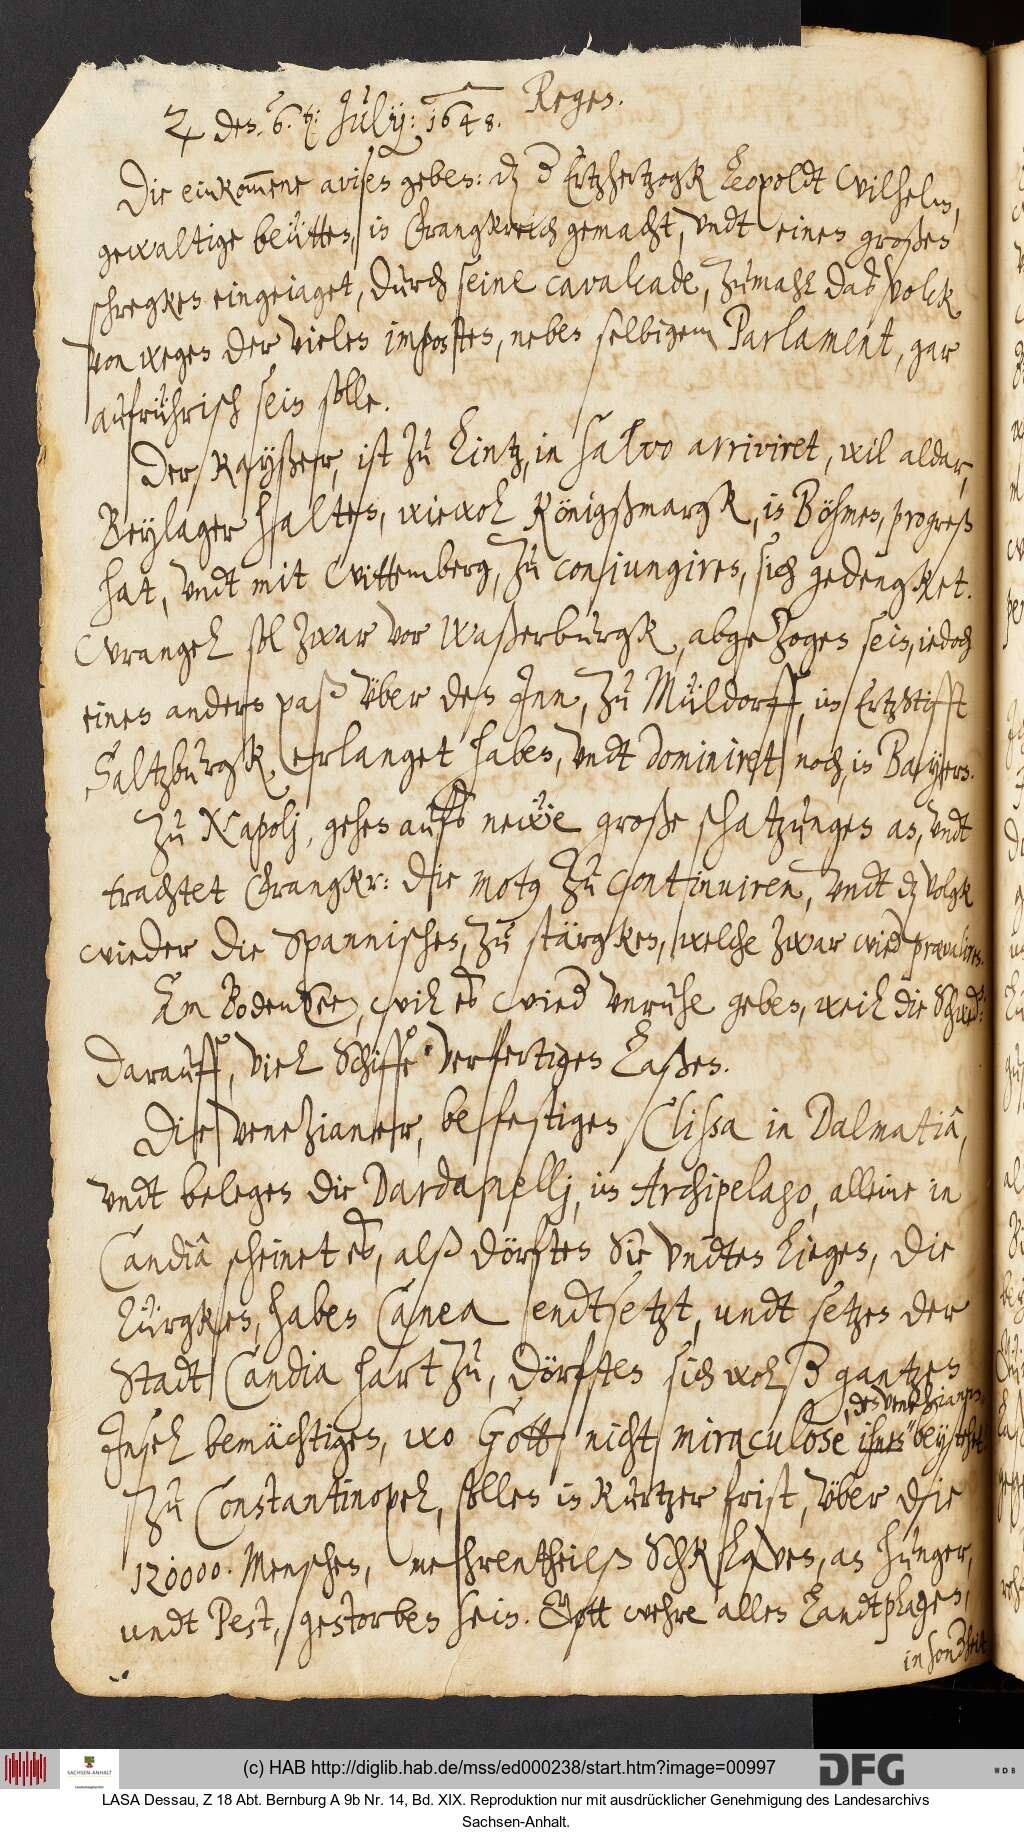 ♃ des: 6. t: Julij: 1648. Regen.
Die einkommene avisen geben: daß der Ertzhertzogk Leopoldt Wilhelm,
gewaltige beütten, in Franckreich gemacht, undt einen großen
schregken eingejaget, durch seine cavalcade, zumahl das volck
von wegen der vielen imposten, neben selbigem Parlament, gar
aufrührisch sein solle.
Der Kayßer, ist zu Lintz, in salvo arriviret, wil aldar,
Beylager halten, wiewol Königßmargk, in Böhmen, progreß
hat, undt mit Wittemberg, zu conjungiren, sich gedengket.
Wrangel sol zwar vor Waßerburgk, abgezogen sein, iedoch
einen andern paß über den Inn, zu Müldorff, im ErtzStifft
Saltzburgk erlanget haben, undt dominiret noch in Bayern.
Zu Napolj, gehen aufs neẅe große schatzungen an, undt
trachtet Franckr: die motus zu continuiren, undt daß volgk
wieder die Spannischen, zu stärgken, welche zwar wied prævaliren.
Am BodenSee, wil es wied unruhe geben, weil die Schwed:
darauff, viel Schiffe verfertigen Laßen.
Die Venezianer, befestigen Clissa in Dalmatiâ,
undt belegen die Dardanellj, im Archipelago, alleine in
Candiâ scheinet es, alß dörften Sie undten liegen, die
Türgken, haben Canea endtsetzt, undt setzen der
Stadt Candia hart zu, dörften sich wol der gantzen
, den Venezianern,
Insel bemächtigen, wo Gott nicht miraculose ihnen beystehet
Zu Constantinopel, sollen in kurtzer frist, über die
120000. Menschen, mehrentheilß Schklaven, an hunger,
undt Pest, gestorben sein. Gott wehre allen Landtplagen,
insonderheit
(c) HAB http://diglib.hab.de/mss/ed000238/start.htm?image=00997
SACHSEN-ANHALT
DFG
WDB
LASA Dessau, Z 18 Abt. Bernburg A 9b Nr. 14, Bd. XIX. Reproduktion nur mit ausdrücklicher Genehmigung des Landesarchivs
Sachsen-Anhalt.